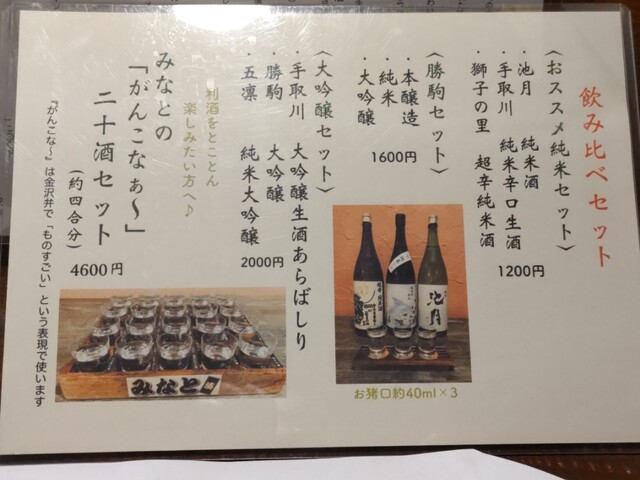 飲み比べセット
〈おススメ純米セット〉
・池月　純米酒
・手取川　純米辛口生酒
・獅子の里　超辛純米酒
1200円
〈勝駒セット〉
・本醸造
・純米
・大吟醸
1600円
〈大吟醸セット〉
・手取川　大吟醸生酒あらばしり
・勝駒　大吟醸
・五凛　純米大吟醸
2000円
お猪口約40ml×3
利酒をとことん
楽しみたい方へ♪
みなとの
「がんこなぁ〜」
二十酒セット
(約四合分)
4600円
「がんこな〜」は金沢弁で「ものすごい」という表現で使います
池月
みなと